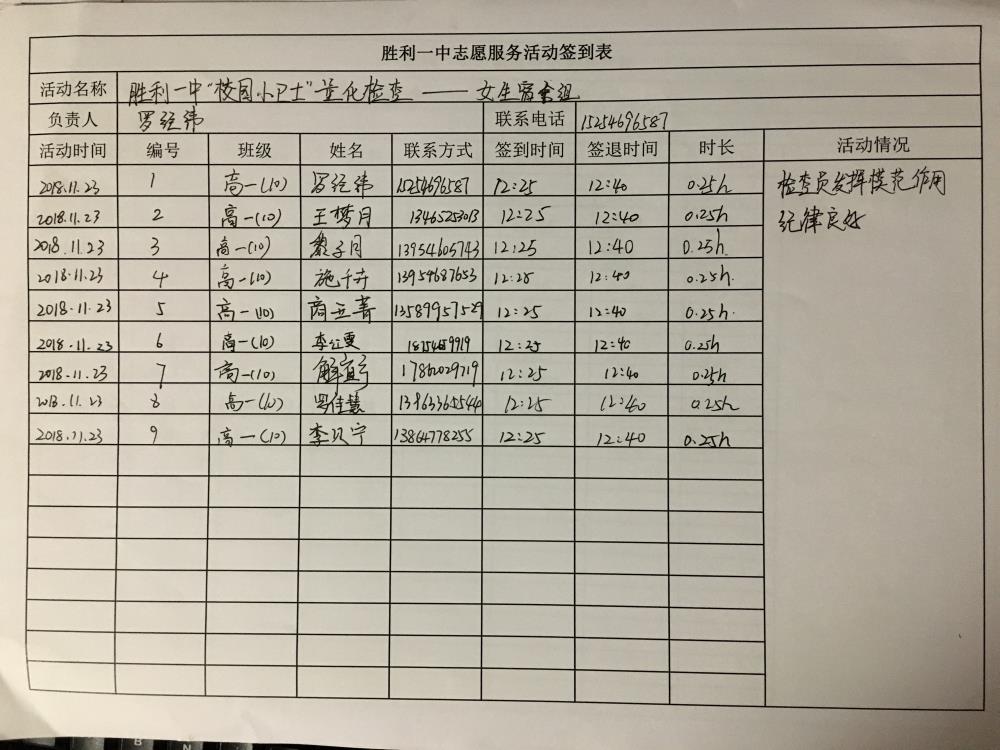 胜利一中志愿服务活动签到表
活动名称 胜利一中"校园小卫士"量化检查——女生宿舍组
负责人 罗经纬 联系电话 15254696587
活动时间 编号 班级 姓名 联系方式 签到时间 签退时间 时长 活动情况
2018.11.23 1 高一(10) 罗经纬 15254696587 12:25 12:40 0.25h 检查员发挥模范作用
2018.11.23 2 高一(10) 王梦月 13465253013 12:25 12:40 0.25h 纪律良好
2018.11.23 3 高一(10) 13954605743 12:25 12:40 0.25h.
2018.11.23 4 高一(10) 施千卉 13954687653 12:25 12:40 0.25h.
2018.11.23 5 高一(10) 商立菁 13589957529 12:25 12:40 0.25h.
2018.11.23 6 高一(10) 12:25 12:40 0.25h
2018.11.23 7 高一(10) 17862029719 12:25 12:40 0.25h
2018.11.23 8 高一(10) 罗佳慧 13963365544 12:25 12:40 0.25h
2018.11.23 9 高一(10) 13864778255 12:25 12:40 0.25h